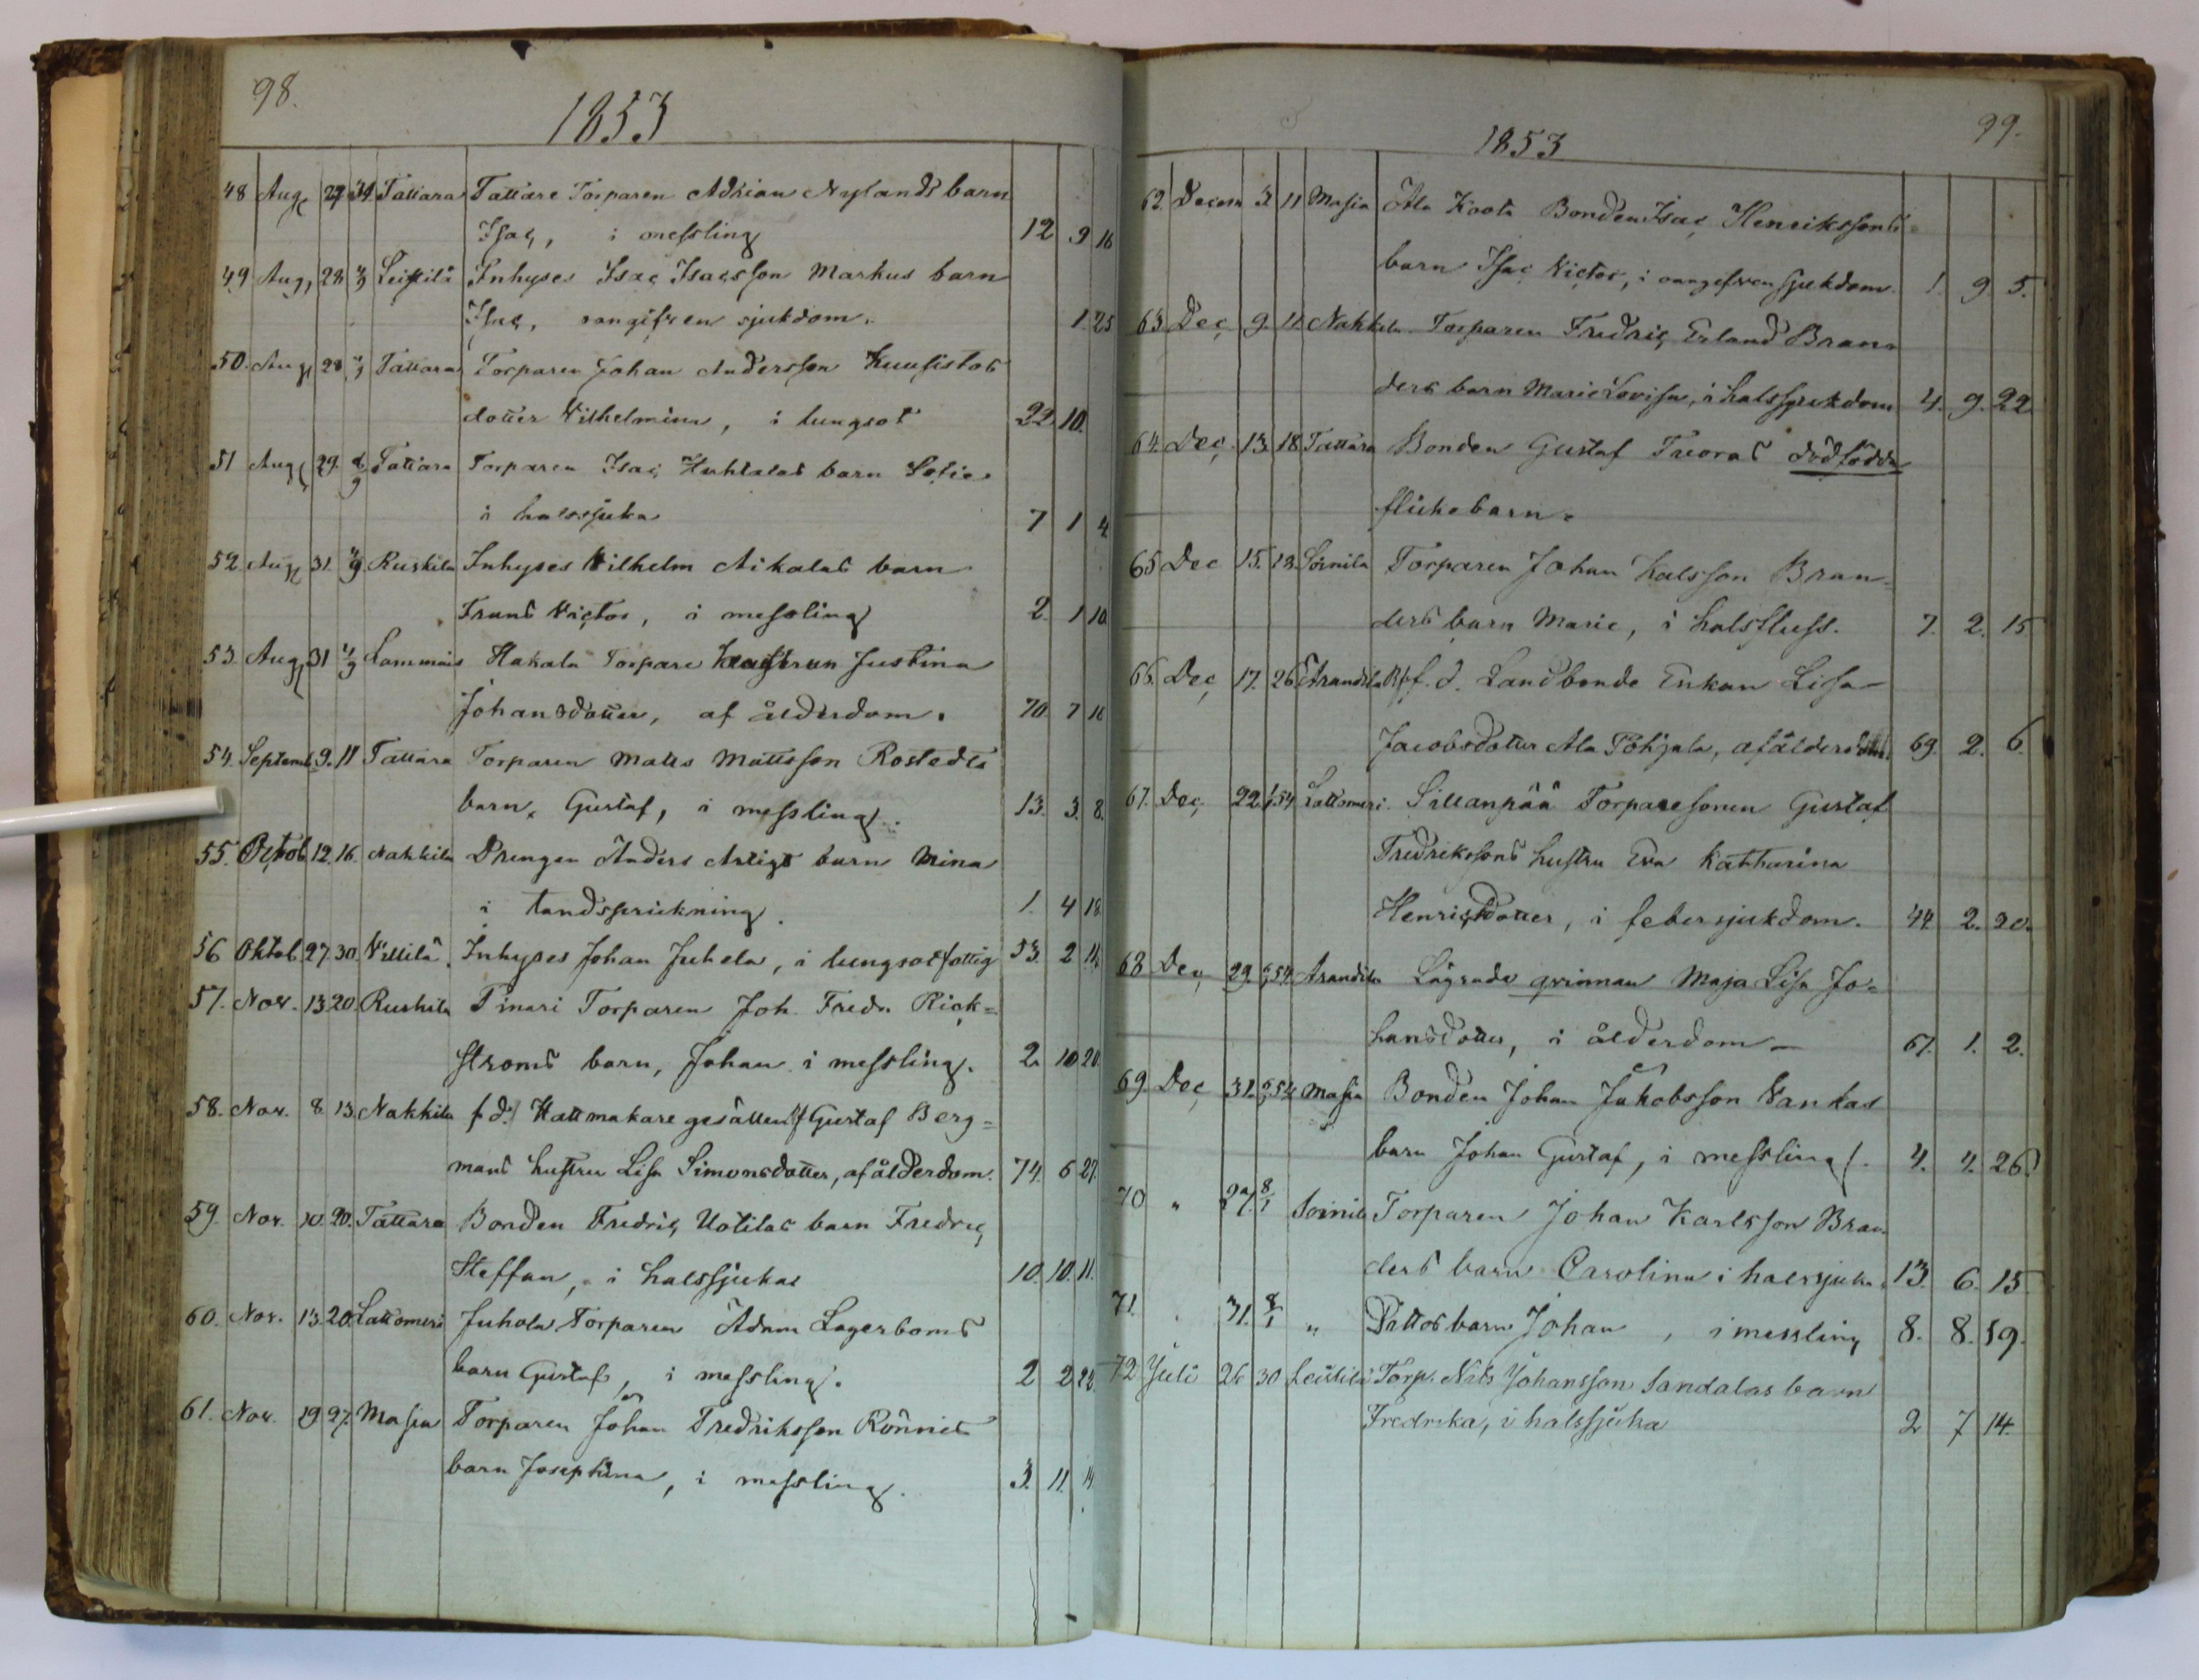 98.
1853
48 Aug 27 Tattara Tattare Torparen Adrian Nylands barn
Isac, i messling 12 9 16
49 Aug, 28 4/9 Leistilä Inhyses Isac Isacsson Markus barn
Isac, oangifven sjukdom. 1. 25
50. Aug 28 4/9 Tattara Torparen Johan Andersson Kuusistos
dotter Wilhelmina, i lungsot 22 10.
51 Aug 29. Tattara Torparen Isac Huhtalas barn Sofia
i halssjuka 7 1 4
52. Aug 31. 4/9 Ruskila Inhyses Wilhelm Aikalas barn
Frans Victor, i messling 2. 1 10
53. Aug 31 4/9 Lammais Hakala Torpare Justina
Johansdotter, af ålderdom. 70 7 16
54. Septemb 9. 11 Tattara Torparen Matts Mattsson Rostedts
barn Gustaf, i messling. 13. 3. 8.
55. Octob 12. 16. Nakkila Drengen Anders Artigs barn Mina
i tandsprickning. 1. 4 18
56 Oktob 27. 30. Villilä Inhyses Johan Juhela, i lungsot fattig 53. 2 11.
57. Nov. 13 20. Ruskila Pinari Torparen Joh. Fredr. Rick=
stroms barn, Johan i messling. 2. 10 20.
58. Nov. 8. 13. Nakkila f.d. Hattmakare gesällen Gustaf Berg=
mans hustru Lisa Simonsdotter, af ålderdom. 74. 6 27.
59. Nov. 10. 20. Tattara Bonden Fredric Uotilas barn Fredric
Steffan, i halssjuka 10. 10. 11.
60. Nov. 13. 20. Lattomeri Juhola Torparen Adam Lagerboms
barn Gustaf, i messling. 2 2 22.
61. Nov. 19 27. Masia Torparen Johan Fredriksson Rönnis
barn Josephina, i messling. 3. 11. 14
99.
1853
62. Decem 3. 11 Masia Ala Koota Bonden Isac Henrikssons
barn Isac Victor, i oangifven sjukdom. 1. 9 5.
63 Dec 9. 11 Nakkila Torparen Fredric Erland Bran=
ders barn Maria Lovisa, i halssjukdom 4. 9. 22.
64. Dec. 13. 18. Tattara Bonden Gustaf Tuoras dödfödda
flickebarn.
65 Dec 15. 18. Soinila Torparen Johan Kalsson Bran=
ders barn Maria, i halsfluss. 7. 2. 15
66. Dec 17. 26 Arandila f.d. Landbonde Enkan Lisa
Jacobsdotter Ala Pohjala, af ålderdom. 69. 2. 6.
67. Dec. 22. 54 Lattomeri. Sillanpää Torparesonen Gustaf
Fredrikssons hustru Eva Katharina
Henricsdotter, i febersjukdom. 44. 2. 20.
68 Dec 29. 54. Arandila Lägrade qvinnan Maja Lisa Jo=
hansdotter, i ålderdom 67. 1. 2.
69. Dec 31. 54 Masia Bonden Johan Jakobsson Vankas
barn Johan Gustaf, i messling. 4. 4. 26.
70 " 27. 8/1 Soinila Torparen Johan Karlsson Bran
ders barn Carolina i halssjuka. 13. 6. 15
71. 31. 8/1 " Dittos barn Johan, i messling 8. 8. 19.
72 Juli 26 30 Leistilä Torp. Nils Johansson Sandalas barn
Fredrika, i halssjuka 2 7 14.